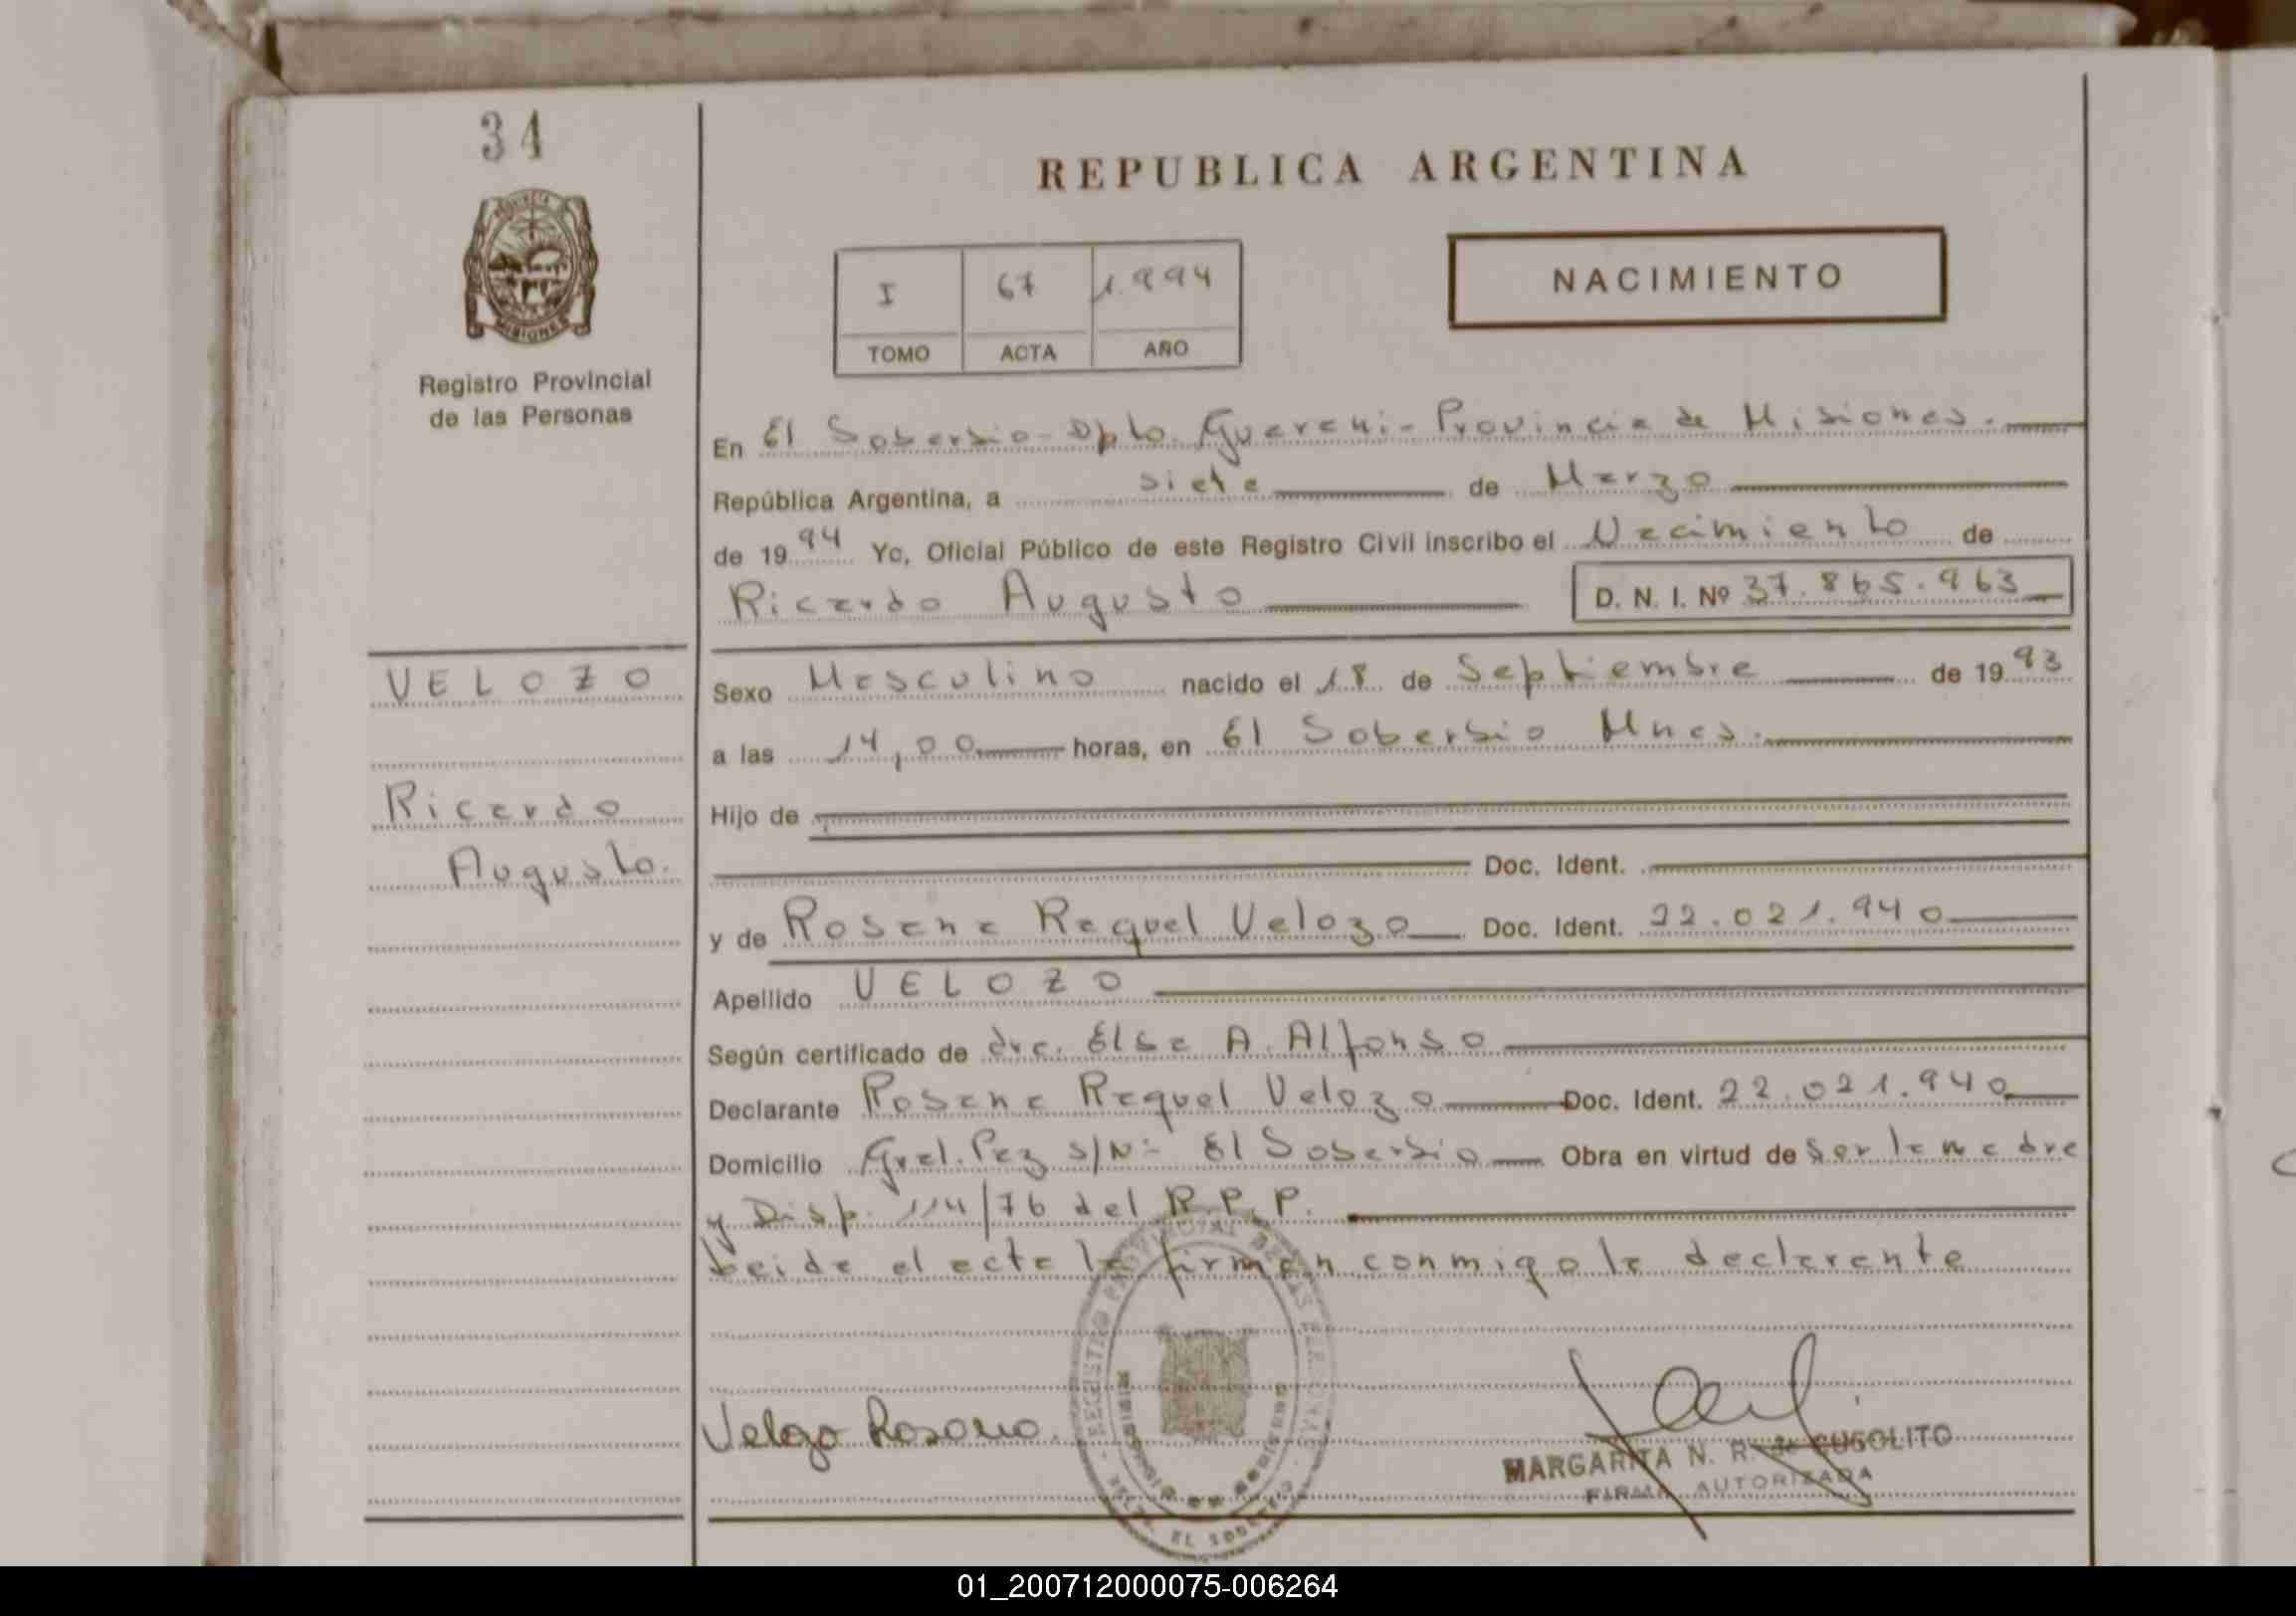 34
REPUBLICA ARGENTINA
PROVINCIA
MISIONES
Registro Provincial
de las Personas
I 67 1.994
TOMO ACTA AÑO
NACIMIENTO
En El Soberbio - Dpto. Guarani - Provincia de Misiones.
República Argentina, a siete de Marzo
de 19 94 Yo, Oficial Público de este Registro Civil inscribo el Nacimiento de
Ricardo Augusto D. N. I. Nº 37.865.963
VELOZO
Ricardo
Augusto.
Sexo Masculino nacido el 18 de Septiembre de 19 93
a las 14,00 horas, en El Soberbio Mnes.
Hijo de
Doc. Ident.
y de Rosana Raquel Velozo Doc. Ident. 22.021.940
Apellido VELOZO
Según certificado de dra. Elsa A. Alfonso
Declarante Rosana Raquel Velozo Doc. Ident. 22.021.940
Domicilio Gral. Paz s/Nº El Soberbio Obra en virtud de ser la madre
y Disp. 114/76 del R.P.P.
Leida el acta la firman conmigo la declarante
REGISTRO PROVINCIAL DE LAS PERSONAS
EL SOBERBIO
MARGARITA N. R. de CUSOLITO
FIRMA AUTORIZADA
01_200712000075-006264